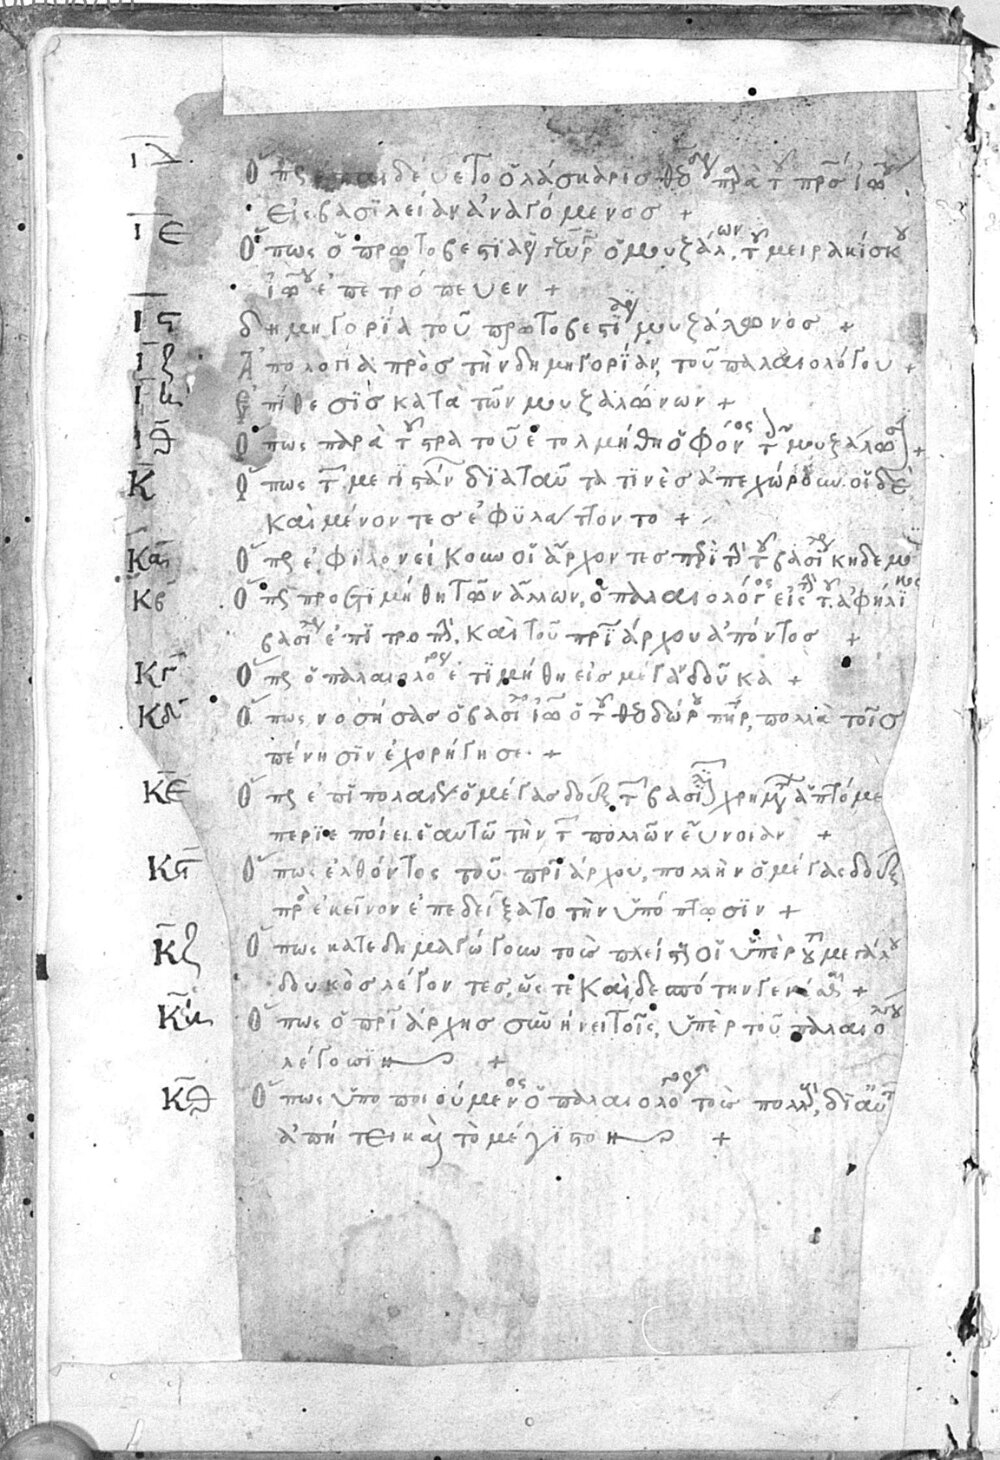 ΙΔ Ὅπως ὁ Λάσκαρις
εἰς βασιλείαν ἀναγόμενος +
ΙΕ Ὅπως ὁ πρωτοβεστιάριος ὁ μουζάλων τοῦ μειρακίσκου
ἐπετρόπευεν +
Ις δημηγορία τοῦ πρωτοβεστιαρίου μουζάλωνος +
ΙΖ Ἀπολογία πρὸς τὴν δημηγορίαν, τοῦ παλαιολόγου +
ΙΗ Ἐπίθεσις κατὰ τῶν μουζαλώνων +
ΙΘ Ὅπως παρὰ τοῦ στρατοῦ ἐτολμήθη ὁ φόνος τῶν μουζαλώνων +
Κ Ὅπως τῶν μεγιστάνων διὰ ταῦτα τινὲς ἀπεχώρουν. οἱ δὲ
καὶ μένοντες ἐφυλάττοντο +
ΚΑ Ὅπως ἐφιλονείκουν οἱ ἄρχοντες περὶ τῆς τοῦ βασιλέως κηδεμονίας
ΚΒ Ὅπως προετιμήθη τῶν ἄλλων, ὁ παλαιολόγος εἰς τὴν τοῦ ἀφήλικος
βασιλέως ἐπιτροπὴν, καὶ τοῦ πατριάρχου ἀπόντος +
ΚΓ Ὅπως ὁ παλαιολόγος ἐτιμήθη εἰς μέγαν δοῦκα +
ΚΔ Ὅπως νοσήσας ὁ βασιλεὺς ὁ τοῦ θεοδώρου πατήρ, πολλὰ τοῖς
πένησιν ἐχορήγησε. +
ΚΕ Ὅπως ἐπιπολαιῶν ὁ μέγας δοὺξ τῶν βασιλικῶν χρημάτων ἁπτόμε
περιεποίει ἑαυτῶ τὴν τῶν πολλῶν εὔνοιαν +
Κς Ὅπως ἐλθόντος τοῦ πατριάρχου, πολλὴν ὁ μέγας δοὺξ
πρὸς ἐκεῖνον ἐπεδείξατο τὴν ὑπόπτωσιν +
ΚΖ Ὅπως κατεδημαγώγουν τοὺς πλείστους οἱ ὑπὲρ τοῦ μεγάλου
δουκὸς λέγοντες, ὥστε καὶ δεσπότην γενέσθαι +
ΚΗ Ὅπως ὁ πατριάρχης συνήνει τοῖς, ὑπὲρ τοῦ παλαιολόγου
λέγουσιν +
ΚΘ Ὅπως ὑποποιούμενος ὁ παλαιολόγος τοὺς πολλούς, δι' αὐτῶν
ἀπήτει καὶ τὸ μέγιστον +